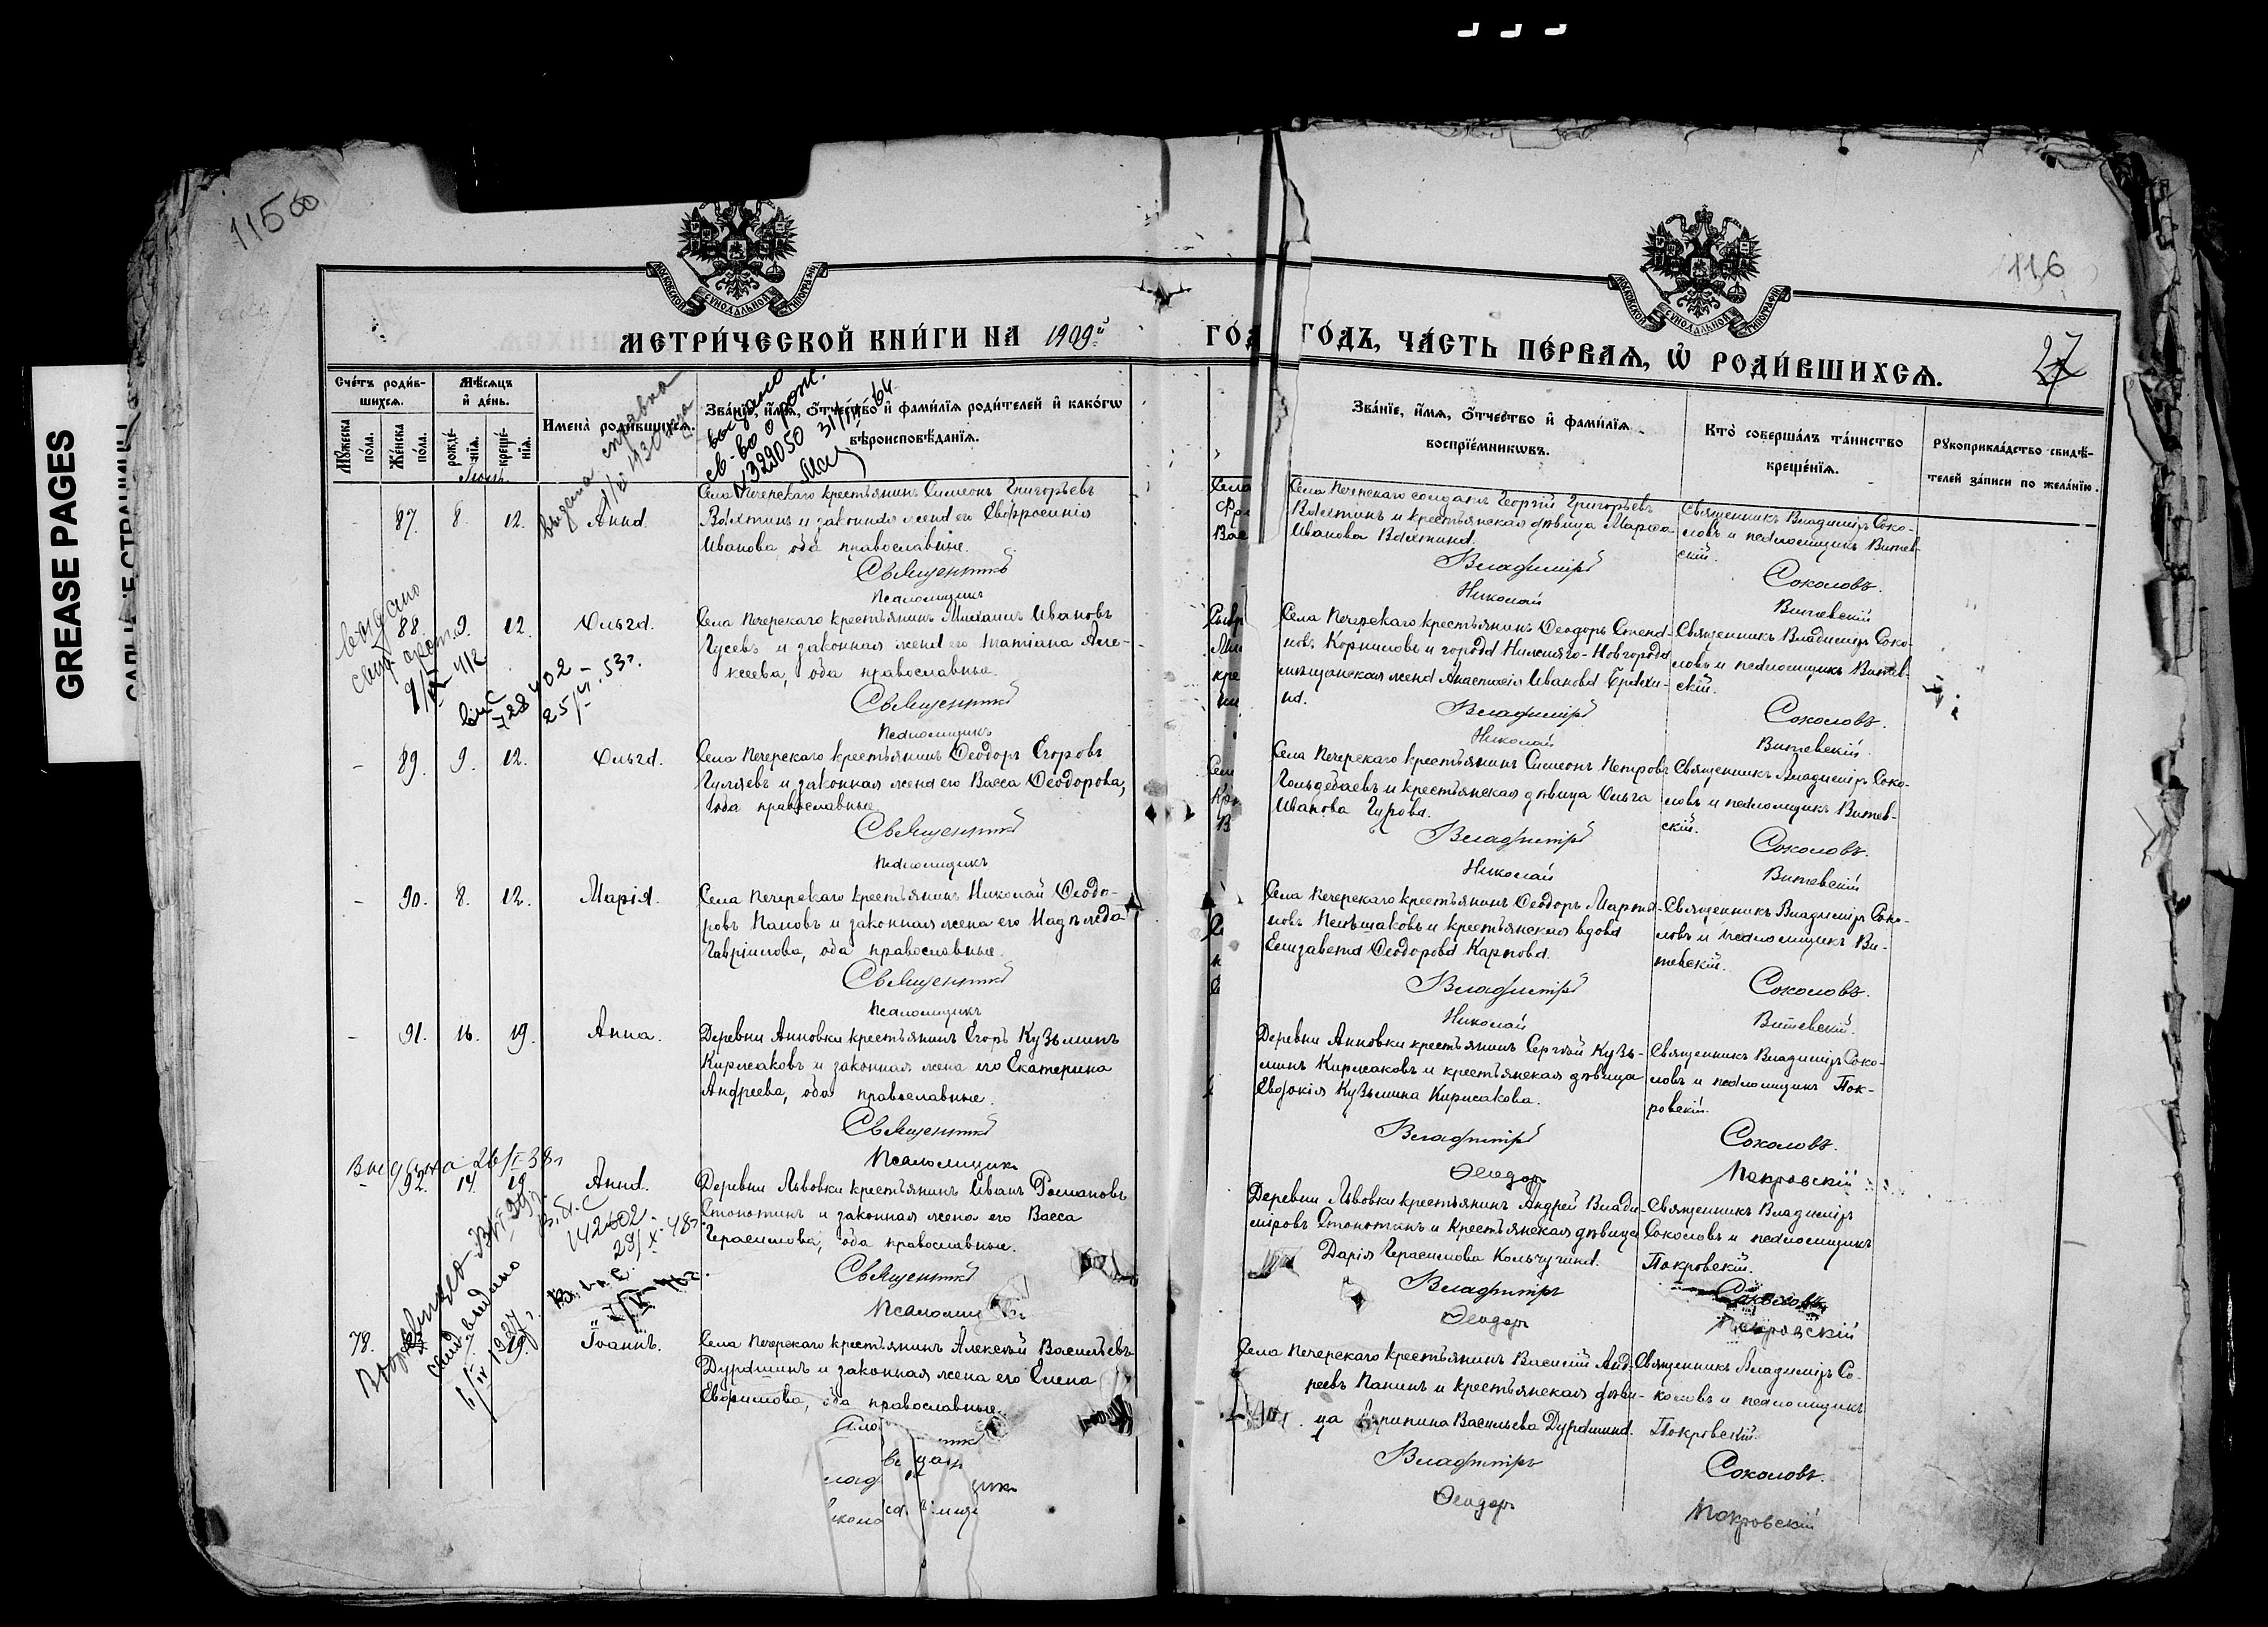 GREASE PAGES
115об
116
27
МОСКОВСКОЙ СѴНОДАЛЬНОЙ ТИПОГРАФІИ
МОСКОВСКОЙ СѴНОДАЛЬНОЙ ТИПОГРАФІИ
МЕТРИ́ЧЕСКОЙ КНИ́ГИ НА 1909й
ГО́ДЪ, ЧА́СТЬ ПЕ́РВАЯ, Ѡ РОДИ́ВШИХСЯ.
Сче́тъ роди́в-
шихся.
Мѣ́сяцъ
и де́нь.
Имена̀ роди́вшихся.
Зва́нїе, и́мя, о́тчество и фами́лїя роди́телей и како́гѡ
вѣроисповѣ́данїя.
Мꙋ́жеска
по́ла.
Же́нска
по́ла.
рожде́-
нїя.
креще́-
нїя.
Зва́нїе, и́мя, о́тчество и фами́лїя
воспрїе́мникѡвъ.
Кто̀ соверша́лъ та́инство
креще́нїя.
Рꙋкоприкла́дство свидѣ́-
телей за́писи по жела́нїю.
выдана справка
1930 года
выдано
св-во о рож.
329050
Іюнь.
87. 8. 12. Анна.
Села Печерскаго крестьянинъ Симеонъ Григорьевъ
Вахтинъ и законная жена его Евфросинія
Иванова оба православные.
Священникъ
Псаломщикъ
Села Печерскаго солдатъ Георгій Григорьевъ
Вахтинъ и крестьянская дѣвица Марѳа
Иванова Вахтина.
Владиміръ
Николай
Священникъ Владиміръ Соко-
ловъ и псаломщикъ Витев-
скій.
Соколовъ.
Витевскій
выдано
88. 9. 12. Ольга.
728402
25/VI. 53г.
Села Печерскаго крестьянинъ Михаилъ Ивановъ
Гусевъ и законная жена его Татіана Але-
ксеева, оба православные.
Священникъ
Псаломщикъ
Села Печерскаго крестьянинъ Ѳеодоръ Степа-
новъ Корниловъ и города Нижняго-Новгорода
мѣщанская жена Анастасія Иванова
на.
Владиміръ
Николай
Священникъ Владиміръ Соко-
ловъ и псаломщикъ Витев-
скій.
Соколовъ.
Витевскій
89. 9. 12. Ольга.
Села Печерскаго крестьянинъ Ѳеодоръ Егоровъ
Гуляевъ и законная жена его Васса Ѳеодорова,
оба православные
Священникъ
Псаломщикъ
Села Печерскаго крестьянинъ Симеонъ Петровъ
и крестьянская дѣвица Ольга
Иванова Гурова.
Владиміръ
Николай
Священникъ Владиміръ Соко-
ловъ и псаломщикъ Витев-
скій.
Соколовъ.
Витевскій
90. 8. 12. Марія.
Села Печерскаго крестьянинъ Николай Ѳеодо-
ровъ Пановъ и законная жена его Надежда
Гавріилова, оба православные.
Священникъ
Псаломщикъ
Села Печерскаго крестьянинъ Ѳеодоръ Марты-
новъ и крестьянская вдова
Елизавета Ѳеодорова Карпова.
Владиміръ
Николай
Священникъ Владиміръ Соко-
ловъ и псаломщикъ Ви-
тевскій.
Соколовъ.
Витевскій.
91. 16. 19. Анна.
Деревни Анновки крестьянинъ Егоръ Кузьминъ
Кирсаковъ и законная жена его Екатерина
Андреева, оба православные.
Священникъ
Псаломщикъ
Деревни Анновки крестьянинъ Сергѣй Кузь-
минъ Кирсаковъ и крестьянская дѣвица
Евдокія Кузьмина Кирсакова.
Владиміръ
Ѳеодоръ
Священникъ Владиміръ Соко-
ловъ и псаломщикъ Пок-
ровскій.
Соколовъ.
Покровскій
92. 17. 19. Анна.
142602
29/X-48г.
Деревни Львовки крестьянинъ Иванъ Романовъ
Стопотинъ и законная жена его Васса
Герасимова, оба православные.
Священникъ
Псаломщикъ
Деревни Львовки крестьянинъ Андрей Влади-
міровъ Стопотинъ и крестьянская дѣвица
Дарія Герасимова Кольчугина.
Владиміръ
Ѳеодоръ
Священникъ Владиміръ
Соколовъ и псаломщикъ
Покровскій.
Соколовъ
Покровскій
78. 19. Іоаннъ.
Села Печерскаго крестьянинъ Алексѣй Васильевъ
Дурашинъ и законная жена его Елена
Евѳимова, оба православные.
Села Печерскаго крестьянинъ Василій Анд-
реевъ Панинъ и крестьянская дѣви-
ца Агрипина Васильева Дурашина.
Владиміръ
Ѳеодоръ
Священникъ Владиміръ Со-
коловъ и псаломщикъ
Покровскій.
Соколовъ.
Покровскій